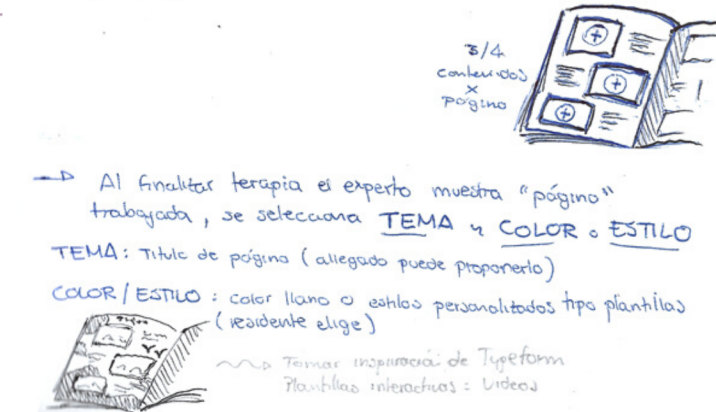 3/4
contenidos
x
página
→ Al finalizar terapia el experto muestra "página"
trabajada, se selecciona TEMA y COLOR o ESTILO
TEMA: Título de página (allegado puede proponerlo)
COLOR/ESTILO: color llano o estilos personalizados tipo plantillas
(residente elige)
Tomar inspiración de Typeform
Plantillas interactivas: Videos